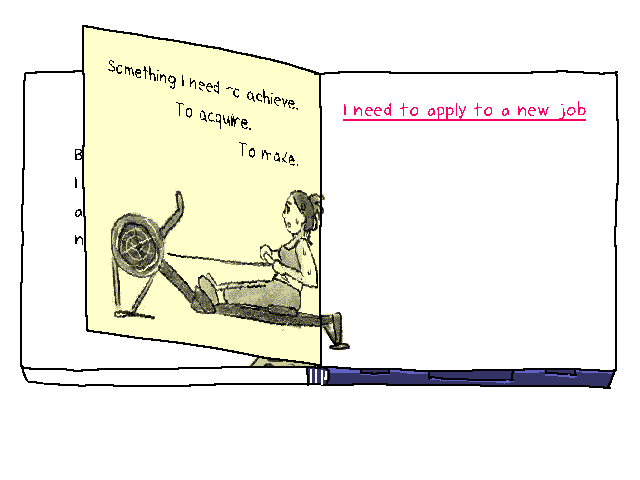 Something I need to achieve.
To acquire.
To make.
I need to apply to a new job
B
I
a
n